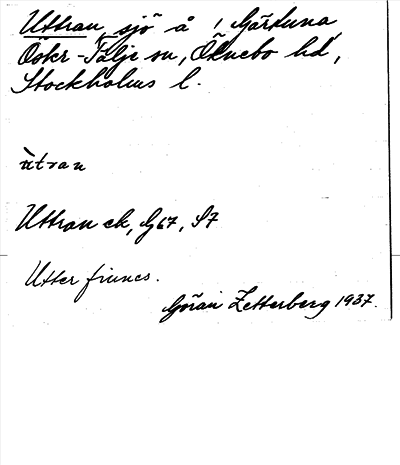 Uttran, sjö å Gärtuna,
Öster-Tälje sn, Öknebo hd,
Stockholms l.
ùtran
Uttran ek, G67, S7
Utter finnes.
Göran Zetterberg 1937.